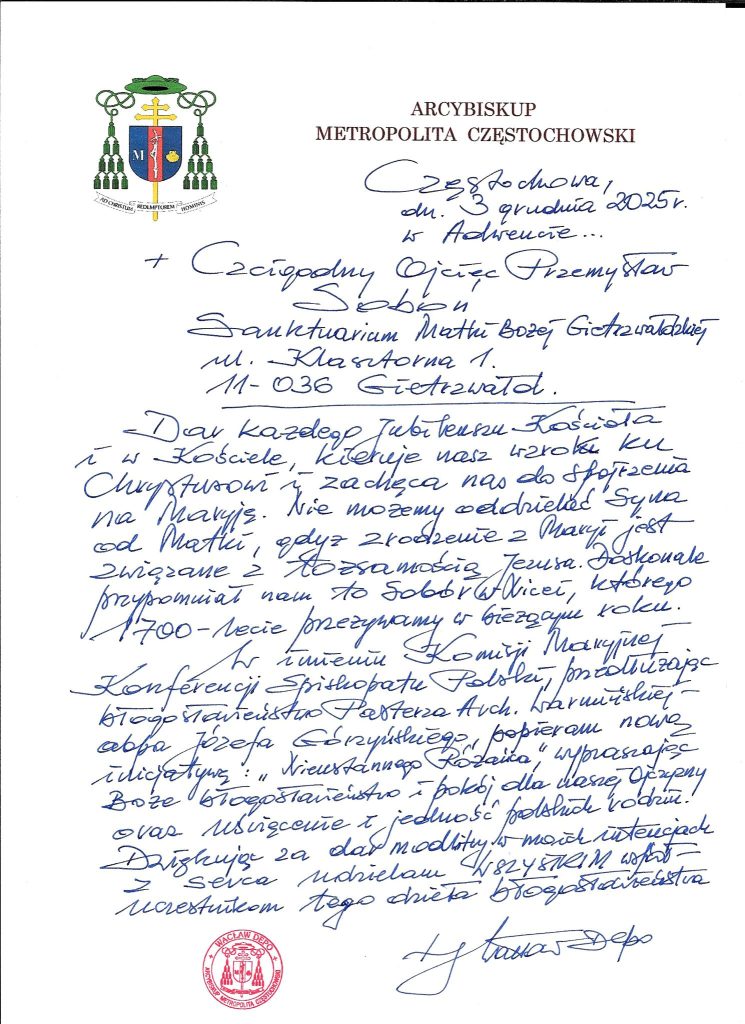 ARCYBISKUP
METROPOLITA CZĘSTOCHOWSKI
M
AD CHRISTUM REDEMPTOREM HOMINIS
Częstochowa,
dn. 3 grudnia 2025 r.
w Adwencie...
+ Czcigodny Ojciec Przemysław
Soboń
Sanktuarium Matki Bożej Gietrzwałdzkiej
ul. Klasztorna 1.
11-036 Gietrzwałd.
Dar każdego Jubileuszu Kościoła
i w Kościele, kieruje nasz wzrok ku
Chrystusowi i zachęca nas do spojrzenia
na Maryję. Nie możemy oddzielać Syna
od Matki, gdyż zrodzenie z Maryi jest
związane z tożsamością Jezusa. Doskonale
przypomniał nam to Sobór w Nicei, którego
1700-lecie przeżywamy w bieżącym roku.
W imieniu Komisji Maryjnej
Konferencji Episkopatu Polski, przedłużając
błogosławieństwo Pasterza Arch. Warmińskiej –
abpa Józefa Górzyńskiego, popieram nową
inicjatywę: „Nieustannego Różańca", wypraszając
Boże błogosławieństwo i pokój dla naszej Ojczyzny
oraz uświęcenie i jedność polskich rodzin.
Dziękując za dar modlitwy w moich intencjach
z serca udzielam WSZYSTKIM współ-
uczestnikom tego dzieła błogosławieństwa
+ Wacław Depo
WACŁAW DEPO
ARCYBISKUP METROPOLITA CZĘSTOCHOWSKI